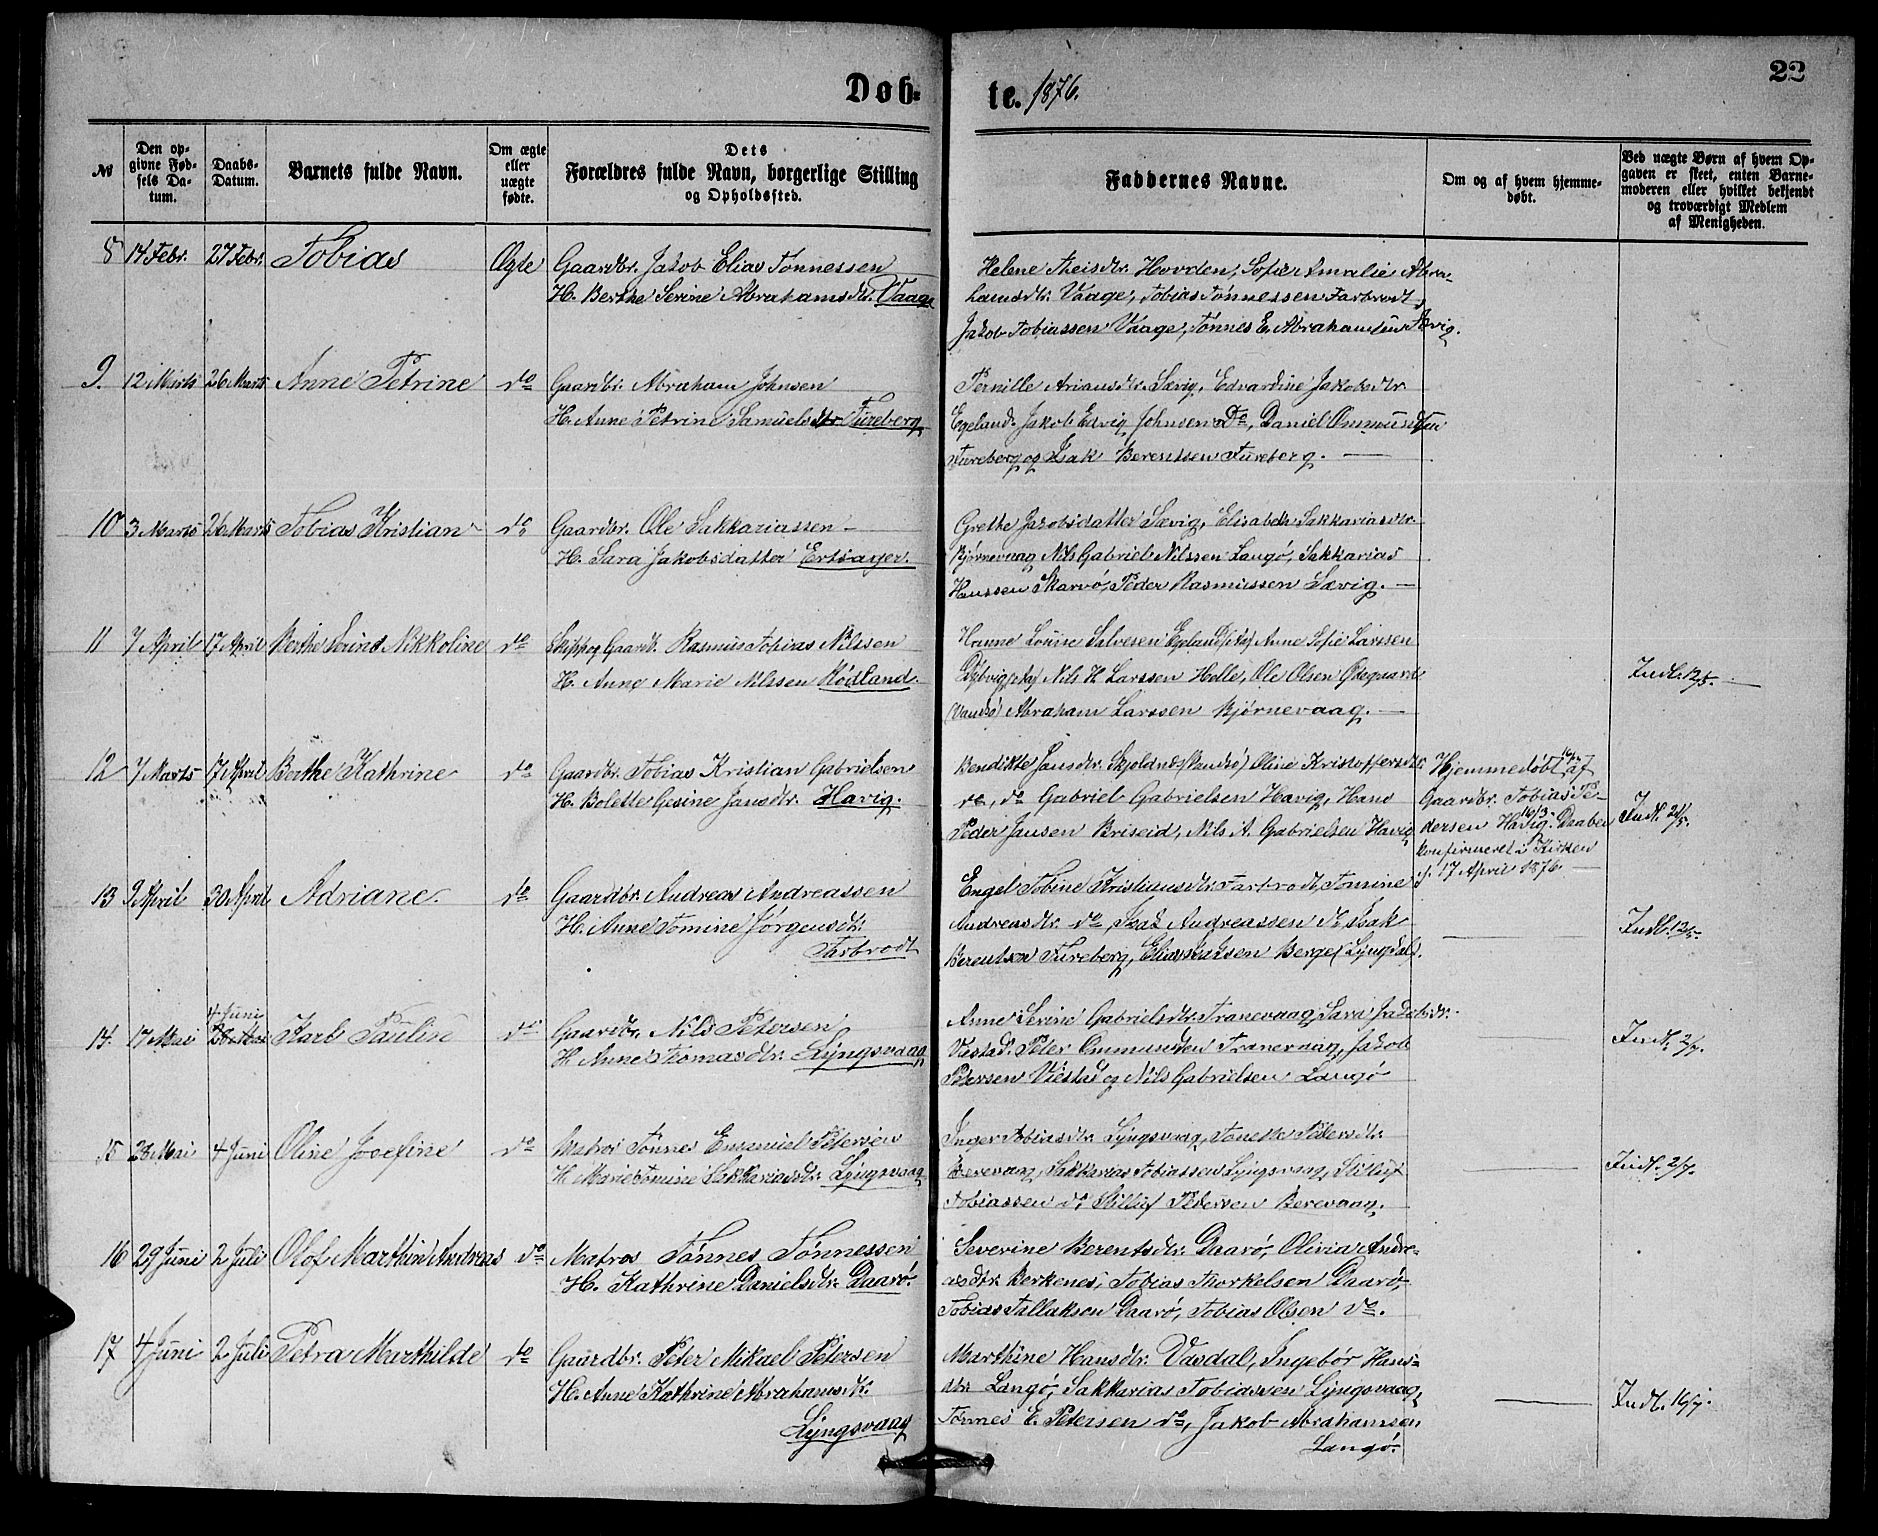 Døb-
te. 1876.
22
No
Den op-
givne Fød-
sels Da-
tum.
Daabs-
Datum.
Barnets fulde Navn.
Om ægte
eller
uægte
fødte.
Dets
Forældres fulde Navn, borgerlige Stilling
og Opholdssted.
Faddernes Navne.
Om og af hvem hjemme-
døbt.
Ved uægte Børn af hvem Op-
gaven er skeet, enten Barne-
moderen eller hvilket bekjendt
og troværdigt Medlem
af Menigheden.
8 14 Febr. 27 Febr. Tobias Ægte
Gaardbr. Jakob Elias Tønnessen
H. Berthe Serine Abrahamsdtr. Vaage
Helene Theisdtr. Hovden, Sofie Amalie Abra-
hamsdtr. Vaage, Tobias Tønnessen Farbrodt,
Jakob Tobiassen Vaage, Tønnes E. Abrahamsen
9. 12 Marts 26 Marts Anne Petrine do
Gaardbr. Abraham Johnsen
H. Anne Petrine Samuelsdtr. Fureberg
Pernille Ariansdtr. Sævig, Edvardine Jakobsdtr.
Egeland, Jakob Edvig Johnsen do, Daniel Ommundsen
Fureberg og Isak Berentsen Fureberg. —
10 3 Marts 26 Marts Tobias Kristian do
Gaardbr. Ole Sakkariassen
H. Sara Jakobsdatter Ertsager.
Grethe Jacobsdatter Sævig, Elisabeth Sakkariasdtr.
Bjørnevaag, Nils Gabriel Nilssen Langø, Sakkarias
Hanssen Skarvø, Peder Rasmussen Sævig. —
11 7 April 17 April Berthe Serine Nikkoline do
Skipp og Gaardb. Rasmus Tobias Nilssen
H. Anne Marie Nilssen Rødland
Hanne Louise Salvesen Egeland Anne Sofie Larssen
Dybvig Nils H. Larssen Helle, Ole Olsen Ødegaard
(Vandsø) Abraham Larssen Bjørnevaag. —
Indl. 12/5. —
12 7 Marts 17 April Berthe Kathrine do
Gaardbr. Tobias Kristian Gabrielsen
H. Bolette Gesine Jansdtr. Havig.
Bendikte Jansdtr. Skjoldnæs (Vandsø) Oline Kristoffersdtr.
do, do Gabriel Gabrielsen Havig, Hans
Peder Jansen Briseid, Nils A. Gabrielsen Havig
Hjemmedøbt af
Gaardbr. Tobias Pe-
dersen Havig. 16/3. Daaben
konfirmeret i Kirken
d. 17 April 1876. —
Indl. 21/5.
13 9 April 30 April Adriane. do
Gaardbr. Andreas Andreassen
H. Anne Tomine Jørgensdtr.
Farbrodt
Engel Tobine Kristiansdtr. Farbrodt, Tomine
Andreasdtr. do, Isak Andreassen do, Isak
Berentsen Fureberg, Elias Isaksen Berge (Lyngdal).
Indl. 12/5.
14. 17 Mai 28 Mai 4 Juni Karl Paulin do
Gaardbr. Nils Petersen
H. Anne Tomasdtr. Lyngsvaag
Anne Serine Gabrielsdtr. Tranevaag, Sara Jakobsdtr.
Vastad. Peter Ommundsen Tranevaag, Jakob
Petersen Viestad og Nils Gabrielsen Langø
Indl. 2/7.
15 28 Mai 4 Juni Oline Josefine do
Matros Tønnes Emanuel Petersen
H. Marie Tomine Sakkariasdtr. Lyngsvaag
Inger Tobiasdtr. Lyngsvaag, Tonette Pedersdtr.
Berevaag, Sakkarias Tobiassen Lyngsvaag, Stilluf
Tobiassen do, Stilluf Pedersen Berevaag.
Indl. 2/7.
16 29 Juni 2 Juli Olof Marthin Andreas do
Matros Tønnes Tønnessen
H. Kathrine Danielsdtr. Daarø.
Severine Berentsdtr. Daarø, Olivia Andre-
asdtr. Berkenes, Tobias Thorkelsen Daarø,
Tobias Tallaksen Daarø, Tobias Olsen do.
17 4 Juni 2 Juli Petra Marthilde do
Gaardbr. Peter Mikael Petersen
H. Anne Kathrine Abrahamsdtr.
Lyngsvaag
Marthine Hansdtr. Vasdal, Ingebør Hans-
dtr. Langø, Sakkarias Tobiassen Lyngsvaag,
Tønnes E. Petersen do, Jakob Abrahamsen
Langø.
Indl. 16/7.